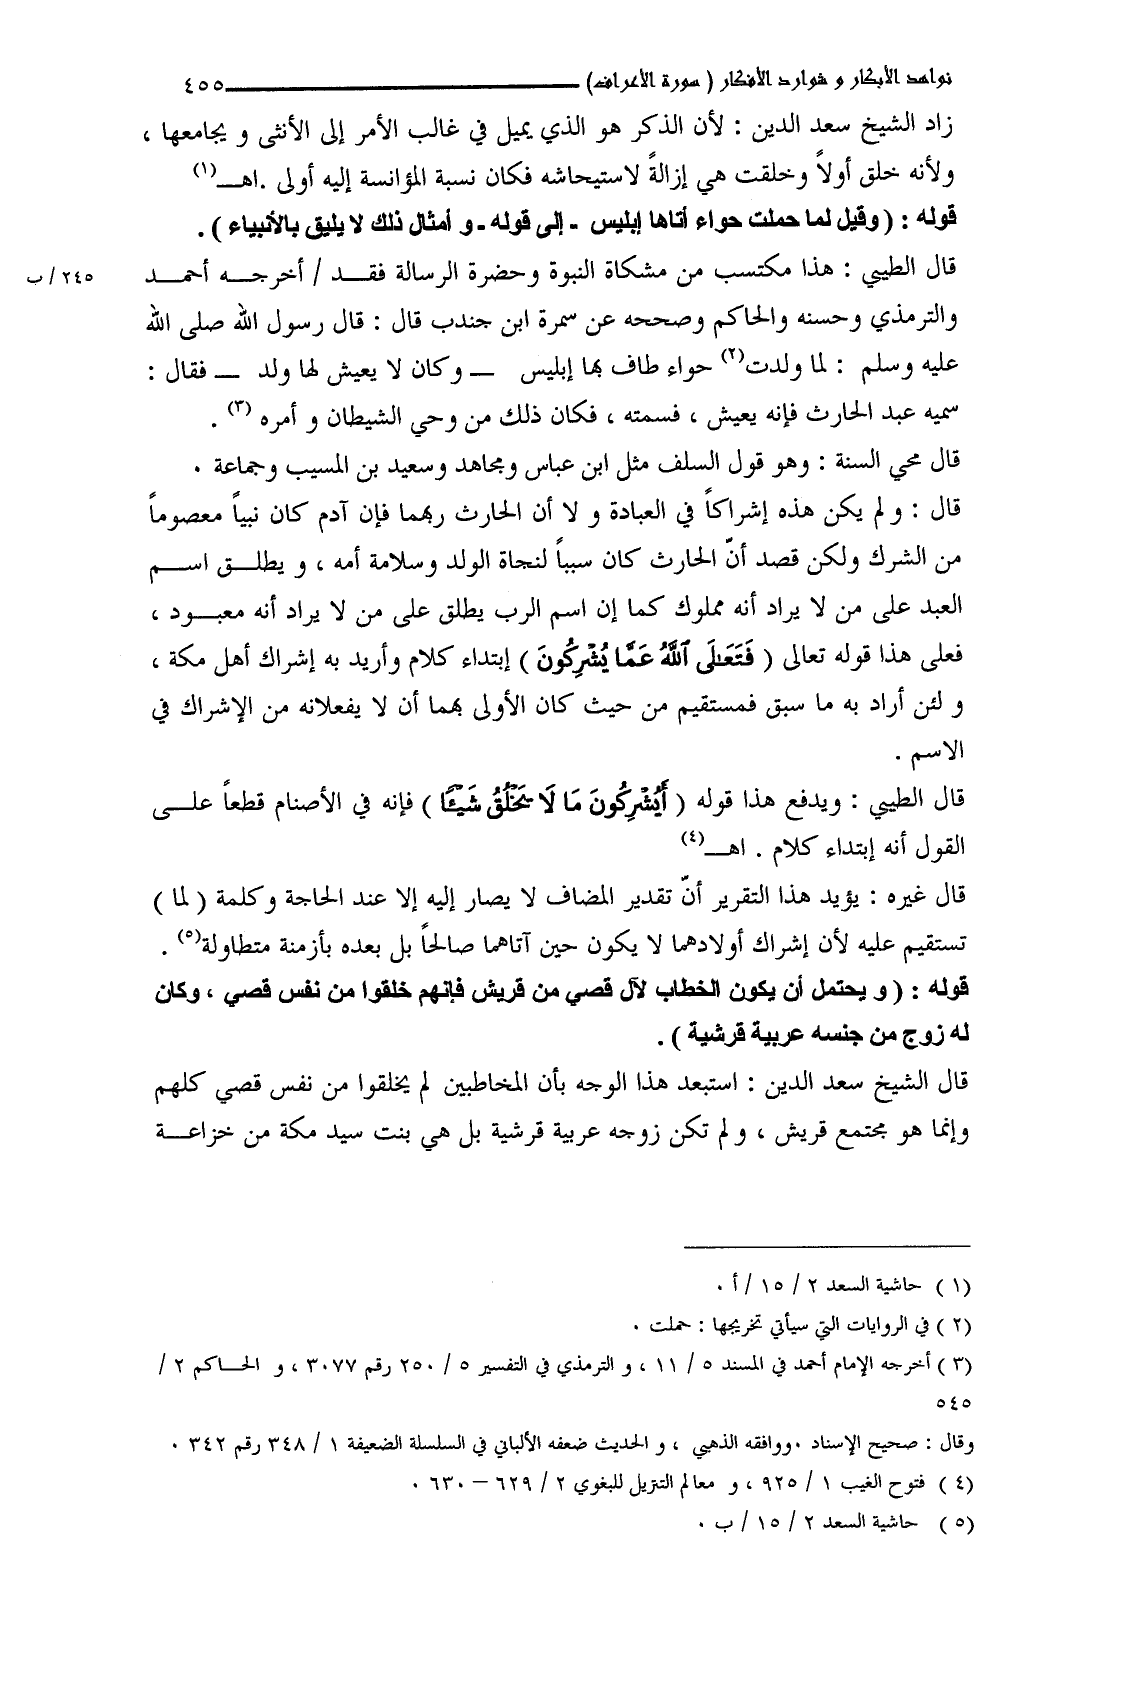 نواهد الأبكار و شوارد الأفكار ( سورة الأعراف) ٤٥٥
زاد الشيخ سعد الدين : لأن الذكر هو الذي يميل في غالب الأمر إلى الأنثى و يجامعها ،
ولأنه خلق أولاً وخلقت هي إزالةً لاستيحاشه فكان نسبة المؤانسة إليه أولى .اهـ(١)
قوله : ( وقيل لما حملت حواء أتاها إبليس - إلى قوله - و أمثال ذلك لا يليق بالأنبياء ) .
قال الطيبي : هذا مكتسب من مشكاة النبوة وحضرة الرسالة فقد / أخرجه أحمد ٢٤٥/ ب
والترمذي وحسنه والحاكم وصححه عن سمرة ابن جندب قال : قال رسول الله صلى الله
عليه وسلم : لما ولدت(٢) حواء طاف بها إبليس – وكان لا يعيش لها ولد – فقال :
سميه عبد الحارث فإنه يعيش ، فسمته ، فكان ذلك من وحي الشيطان و أمره (٣) .
قال محي السنة : وهو قول السلف مثل ابن عباس ومجاهد وسعيد بن المسيب وجماعة .
قال : و لم يكن هذه إشراكاً في العبادة و لا أن الحارث ربهما فإن آدم كان نبياً معصوماً
من الشرك ولكن قصد أنّ الحارث كان سبباً لنجاة الولد وسلامة أمه ، و يطلق اسم
العبد على من لا يراد أنه مملوك كما إن اسم الرب يطلق على من لا يراد أنه معبود ،
فعلى هذا قوله تعالى ( فَتَعَـٰلَى ٱللَّهُ عَمَّا يُشْرِكُونَ ) إبتداء كلام وأريد به إشراك أهل مكة ،
و لئن أراد به ما سبق فمستقيم من حيث كان الأولى بهما أن لا يفعلانه من الإشراك في
الاسم .
قال الطيبي : ويدفع هذا قوله ( أَيُشْرِكُونَ مَا لَا يَخْلُقُ شَيْـًٔا ) فإنه في الأصنام قطعاً على
القول أنه إبتداء كلام . اهـ(٤)
قال غيره : يؤيد هذا التقرير أنّ تقدير المضاف لا يصار إليه إلا عند الحاجة وكلمة ( لما )
تستقيم عليه لأن إشراك أولادهما لا يكون حين آتاهما صالحاً بل بعده بأزمنة متطاولة(٥) .
قوله : ( و يحتمل أن يكون الخطاب لآل قصي من قريش فإنهم خلقوا من نفس قصي ، وكان
له زوج من جنسه عربية قرشية ) .
قال الشيخ سعد الدين : استبعد هذا الوجه بأن المخاطبين لم يخلقوا من نفس قصي كلهم
وإنما هو مجتمع قريش ، و لم تكن زوجه عربية قرشية بل هي بنت سيد مكة من خزاعة
(١) حاشية السعد ٢ / ١٥ /أ .
(٢) في الروايات التي سيأتي تخريجها : حملت .
(٣) أخرجه الإمام أحمد في المسند ٥ / ١١ ، و الترمذي في التفسير ٥ / ٢٥٠ رقم ٣٠٧٧ ، و الحاكم ٢ /
٥٤٥
وقال : صحيح الإسناد .ووافقه الذهبي ، و الحديث ضعفه الألباني في السلسلة الضعيفة ١ / ٣٤٨ رقم ٣٤٢ .
(٤) فتوح الغيب ١ / ٩٢٥ ، و معالم التنزيل للبغوي ٢ / ٦٢٩ – ٦٣٠ .
(٥) حاشية السعد ٢ / ١٥ / ب .